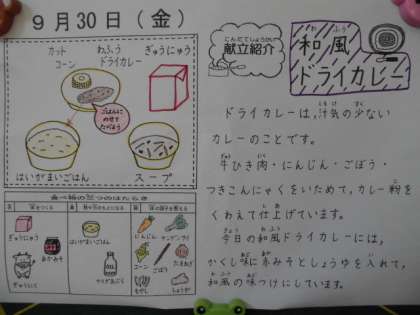 9月30日（金）
カット
コーン
わふう
ドライカレー
ぎゅうにゅう
ごはんに
のせて
たべよう
はいがまいごはん
スープ
こんだてしょうかい
献立紹介
わふう
和風
ドライカレー
ドライカレーは、汁気の少ない
カレーのことです。
牛ひき肉・にんじん・ごぼう・
つきこんにゃくをいためて、カレー粉を
くわえて仕上げています。
今日の和風ドライカレーには、
かくし味に赤みそとしょうゆを入れて、
和風の味つけにしています。
食べ物の三つのはたらき
ぎゅうにゅう
あかみそ
ぎゅうにく
はいがまいごはん
にんじん
コーン
ごぼう
たまねぎ
もやし
しょうが